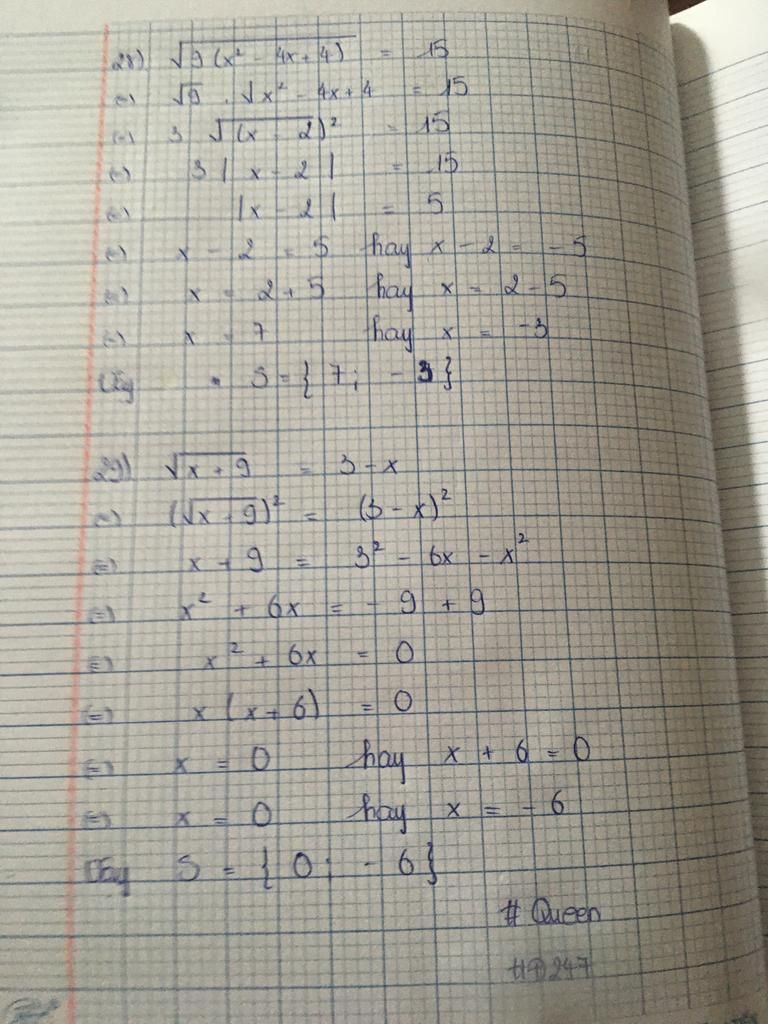 28) √9(x² - 4x + 4) = 15
(=) √9 . √x² - 4x + 4 = 15
(=) 3 √(x - 2)² = 15
(=) 3 | x - 2 | = 15
(=) |x - 2| = 5
(=) x - 2 = 5 hay x - 2 = -5
(=) x = 2 + 5 hay x = 2 - 5
(=) x = 7 hay x = -3
Vậy S = { 7; - 3 }
29) √x + 9 = 3 - x
(=) (√x + 9)² = (3 - x)²
(=) x + 9 = 3² - 6x - x²
(=) x² + 6x = - 9 + 9
(=) x² + 6x = 0
(=) x (x + 6) = 0
(=) x = 0 hay x + 6 = 0
(=) x = 0 hay x = - 6
Vậy S = { 0; - 6 }
# Queen